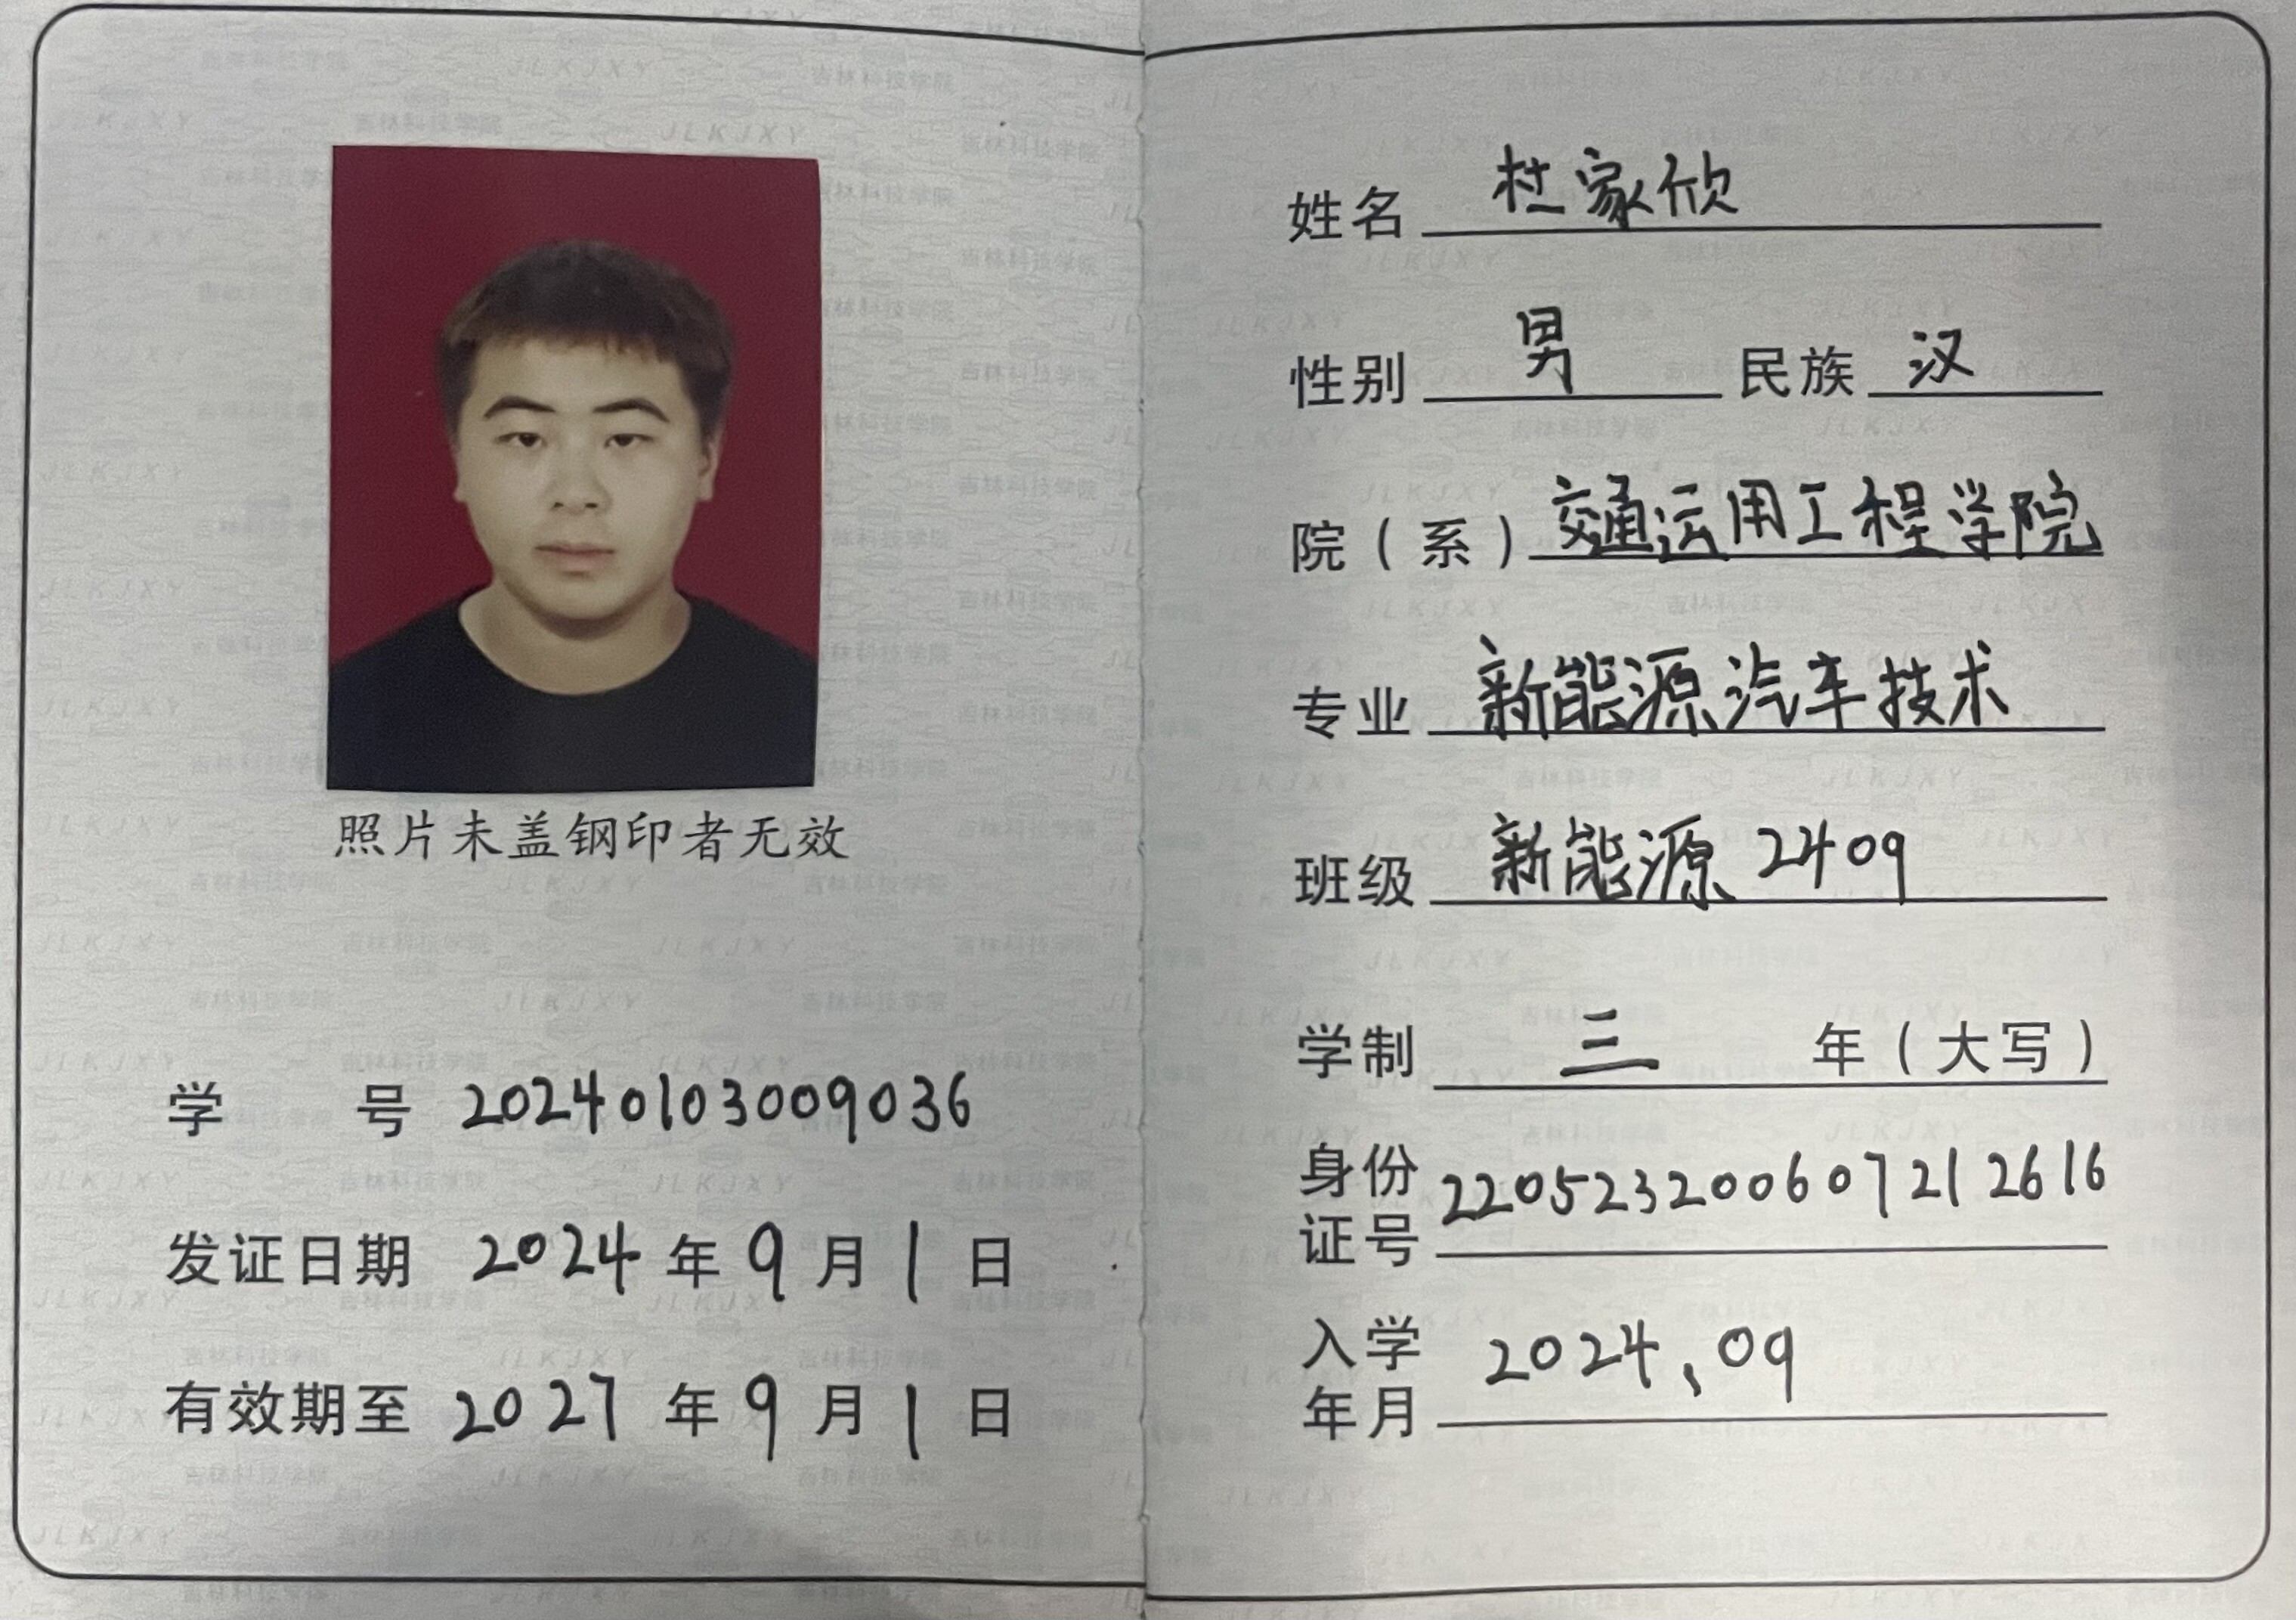 照片未盖钢印者无效
学 号 20240103009036
发证日期 2024 年 9 月 1 日
有效期至 2027 年 9 月 1 日
姓名 杜家欣
性别 男 民族 汉
院（系）交通运用工程学院
专业 新能源汽车技术
班级 新能源2409
学制 三 年（大写）
身份证号 220523200607212616
入学年月 2024、09
吉林科技学院 JLKJXY